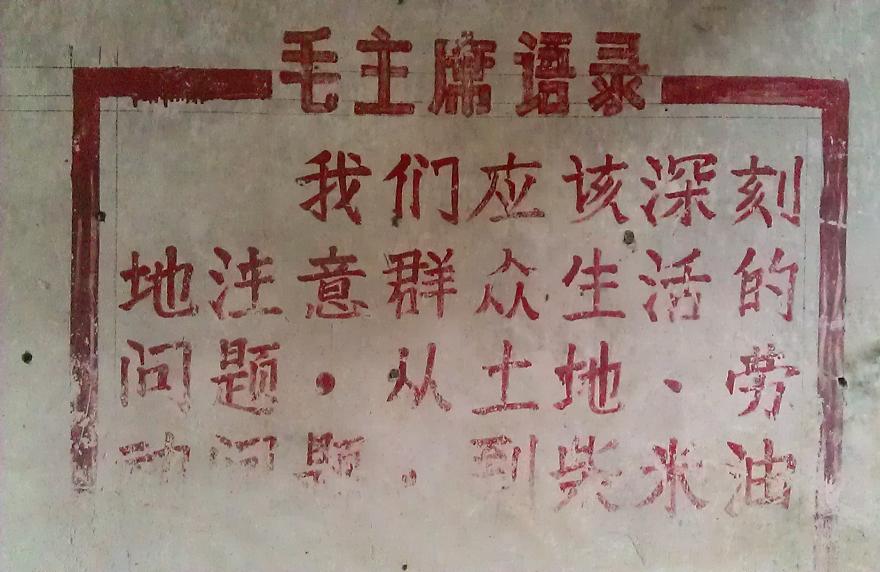 毛主席语录
我们应该深刻
地注意群众生活的
问题，从土地、劳
动问题，到柴米油